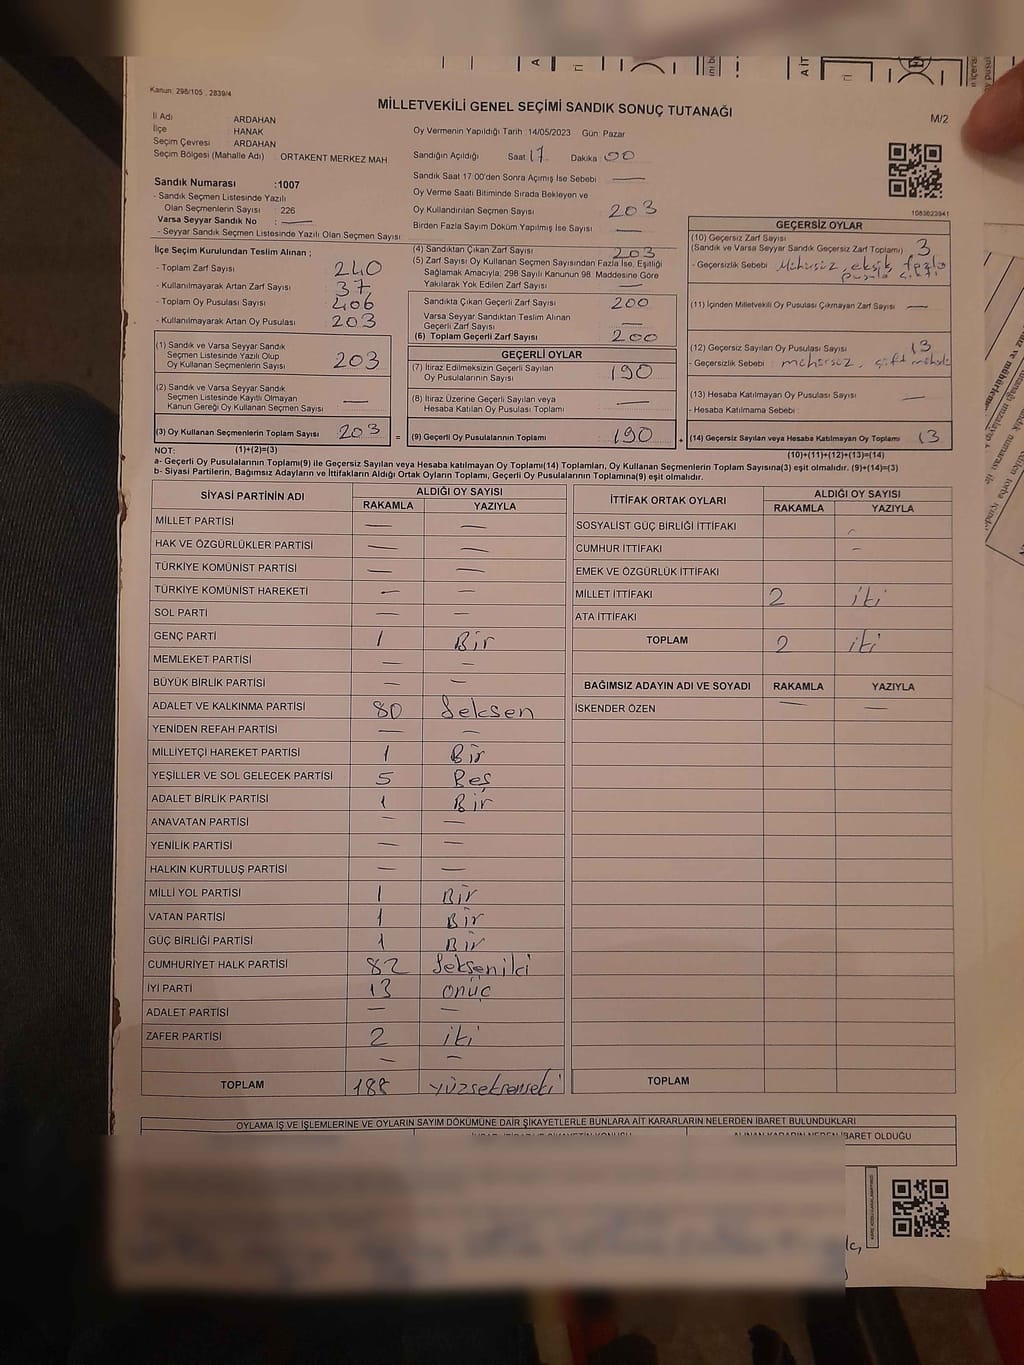 Kanun: 298/105 , 2839/4
MİLLETVEKİLİ GENEL SEÇİMİ SANDIK SONUÇ TUTANAĞI
M/2
İl Adı ARDAHAN
İlçe HANAK
Seçim Çevresi ARDAHAN
Seçim Bölgesi (Mahalle Adı) ORTAKENT MERKEZ MAH.
Sandık Numarası :1007
- Sandık Seçmen Listesinde Yazılı
Olan Seçmenlerin Sayısı : 226
Varsa Seyyar Sandık No : —
- Seyyar Sandık Seçmen Listesinde Yazılı Olan Seçmen Sayısı
Oy Vermenin Yapıldığı Tarih :14/05/2023 Gün: Pazar
Sandığın Açıldığı Saat 17 Dakika 00
Sandık Saat 17:00'den Sonra Açılmış İse Sebebi —
Oy Verme Saati Bitiminde Sırada Bekleyen ve
Oy Kullandırılan Seçmen Sayısı 203
Birden Fazla Sayım Döküm Yapılmış İse Sayısı —
1083623941
İlçe Seçim Kurulundan Teslim Alınan ;
- Toplam Zarf Sayısı 240
- Kullanılmayarak Artan Zarf Sayısı 37
- Toplam Oy Pusulası Sayısı 406
- Kullanılmayarak Artan Oy Pusulası 203
(1) Sandık ve Varsa Seyyar Sandık
Seçmen Listesinde Yazılı Olup
Oy Kullanan Seçmenlerin Sayısı 203
(2) Sandık ve Varsa Seyyar Sandık
Seçmen Listesinde Kayıtlı Olmayan
Kanun Gereği Oy Kullanan Seçmen Sayısı —
(3) Oy Kullanan Seçmenlerin Toplam Sayısı 203 =
(4) Sandıktan Çıkan Zarf Sayısı 203
(5) Zarf Sayısı Oy Kullanan Seçmen Sayısından Fazla İse, Eşitliği
Sağlamak Amacıyla; 298 Sayılı Kanunun 98. Maddesine Göre
Yakılarak Yok Edilen Zarf Sayısı —
Sandıkta Çıkan Geçerli Zarf Sayısı 200
Varsa Seyyar Sandıktan Teslim Alınan
Geçerli Zarf Sayısı —
(6) Toplam Geçerli Zarf Sayısı 200
GEÇERLİ OYLAR
(7) İtiraz Edilmeksizin Geçerli Sayılan
Oy Pusulalarının Sayısı 190
(8) İtiraz Üzerine Geçerli Sayılan veya
Hesaba Katılan Oy Pusulası Toplamı —
(9) Geçerli Oy Pusulalarının Toplamı 190 +
GEÇERSİZ OYLAR
(10) Geçersiz Zarf Sayısı
(Sandık ve Varsa Seyyar Sandık Geçersiz Zarf Toplamı) 3
- Geçersizlik Sebebi Mühürsüz, eksik fazla
pusula
(11) İçinden Milletvekili Oy Pusulası Çıkmayan Zarf Sayısı —
(12) Geçersiz Sayılan Oy Pusulası Sayısı 13
- Geçersizlik Sebebi : mühürsüz, çift
(13) Hesaba Katılmayan Oy Pusulası Sayısı —
- Hesaba Katılmama Sebebi :
(14) Geçersiz Sayılan veya Hesaba Katılmayan Oy Toplamı 13
NOT: (1)+(2)=(3) (10)+(11)+(12)+(13)=(14)
a- Geçerli Oy Pusulalarının Toplamı(9) ile Geçersiz Sayılan veya Hesaba katılmayan Oy Toplamı(14) Toplamları, Oy Kullanan Seçmenlerin Toplam Sayısına(3) eşit olmalıdır. (9)+(14)=(3)
b- Siyasi Partilerin, Bağımsız Adayların ve İttifakların Aldığı Ortak Oyların Toplamı, Geçerli Oy Pusulalarının Toplamına(9) eşit olmalıdır.
SİYASİ PARTİNİN ADI ALDIĞI OY SAYISI
RAKAMLA YAZIYLA
MİLLET PARTİSİ — —
HAK VE ÖZGÜRLÜKLER PARTİSİ — —
TÜRKİYE KOMÜNİST PARTİSİ — —
TÜRKİYE KOMÜNİST HAREKETİ — —
SOL PARTİ — —
GENÇ PARTİ 1 Bir
MEMLEKET PARTİSİ — —
BÜYÜK BİRLİK PARTİSİ — —
ADALET VE KALKINMA PARTİSİ 80 Seksen
YENİDEN REFAH PARTİSİ — —
MİLLİYETÇİ HAREKET PARTİSİ 1 Bir
YEŞİLLER VE SOL GELECEK PARTİSİ 5 Beş
ADALET BİRLİK PARTİSİ 1 Bir
ANAVATAN PARTİSİ — —
YENİLİK PARTİSİ — —
HALKIN KURTULUŞ PARTİSİ — —
MİLLİ YOL PARTİSİ 1 Bir
VATAN PARTİSİ 1 Bir
GÜÇ BİRLİĞİ PARTİSİ 1 Bir
CUMHURİYET HALK PARTİSİ 82 Sekseniki
İYİ PARTİ 13 onüç
ADALET PARTİSİ — —
ZAFER PARTİSİ 2 iki
— —
TOPLAM 188 yüzseksenseki
İTTİFAK ORTAK OYLARI ALDIĞI OY SAYISI
RAKAMLA YAZIYLA
SOSYALİST GÜÇ BİRLİĞİ İTTİFAKI
CUMHUR İTTİFAKI —
EMEK VE ÖZGÜRLÜK İTTİFAKI
MİLLET İTTİFAKI 2 iki
ATA İTTİFAKI
TOPLAM 2 iki
BAĞIMSIZ ADAYIN ADI VE SOYADI RAKAMLA YAZIYLA
İSKENDER ÖZEN — —
TOPLAM
OYLAMA İŞ VE İŞLEMLERİNE VE OYLARIN SAYIM DÖKÜMÜNE DAİR ŞİKAYETLERLE BUNLARA AİT KARARLARIN NELERDEN İBARET BULUNDUKLARI
ALINAN KARARIN NEDEN İBARET OLDUĞU